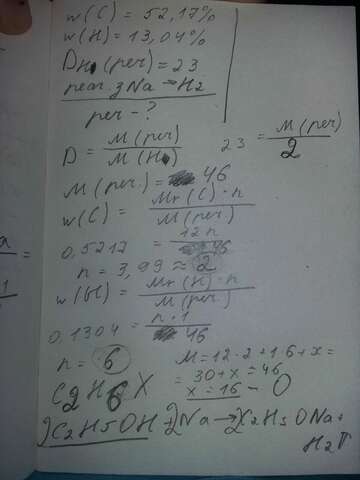 w(C) = 52,17%
w(H) = 13,04%
D H (рег) = 23
реаг. з Na → H2
рег - ?
D = M(рег) / M(H)
23 = M(рег) / 2
M(рег.) = 46
w(C) = Mr(C)·n / M(рег)
0,5217 = 12n / 46
n = 3,99 ≈ 2
w(H) = Mr(H)·n / M(рег.)
0,1304 = n·1 / 46
n = 6
M = 12·2 + 1·6 + x =
= 30 + x = 46
x = 16 - O
C2H6X
2C2H5OH + 2Na → 2C2H5ONa +
H2↑